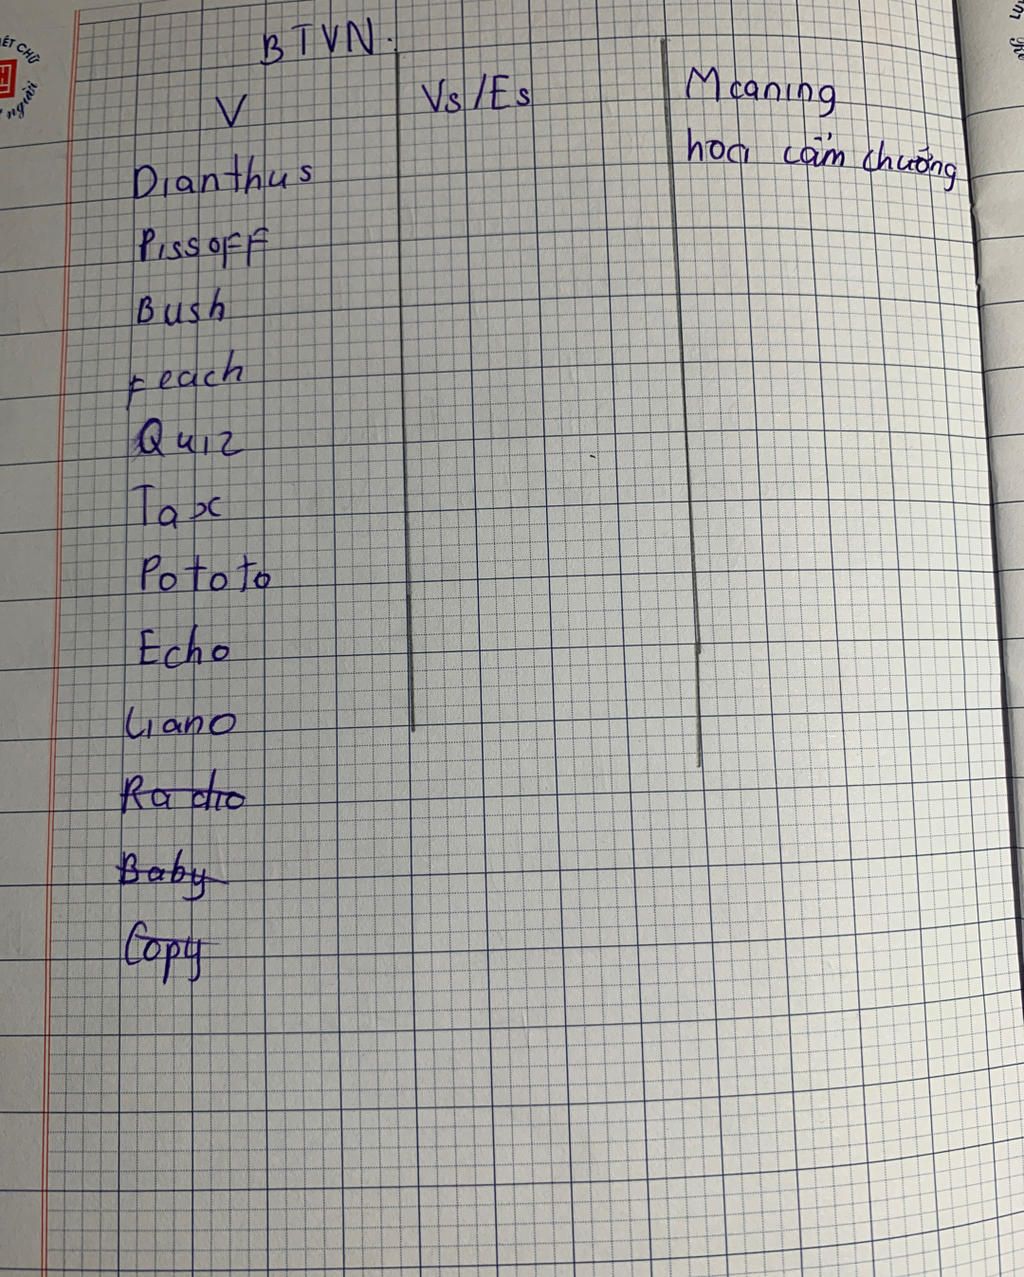 BTVN.
V Vs/Es Meaning
Dianthus hoa cẩm chướng
Piss off
Bush
Feach
Quiz
Tax
Pototo
Echo
Liano
Radio
Baby
Copy
ÉT CHỮ
người